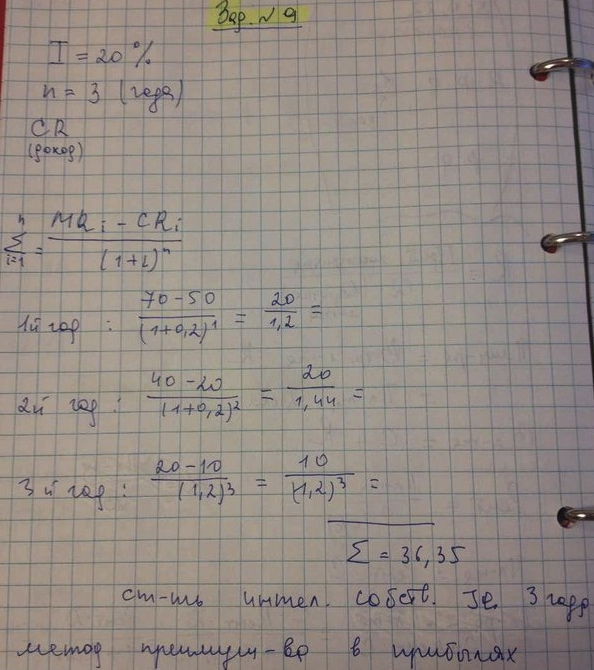 Зад. №9
I = 20%
n = 3 (года)
CR
(доход)
n
Σ = MR i - CR i / (1+i)^n
i=1
1й год : 70-50 / (1+0,2)^1 = 20 / 1,2 =
2й год : 40-20 / (1+0,2)^2 = 20 / 1,44 =
3й год : 20-10 / (1,2)^3 = 10 / (1,2)^3 =
Σ = 36,35
ст-ть интел. собств. 3 года
метод преимущ-ва в прибылях